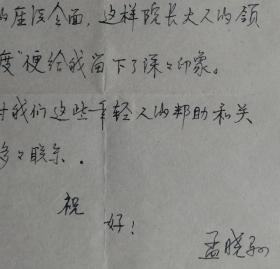 的座谈会面，这样院长大人的领
度"便给我留下了深々印象。
对我们这些年轻人的帮助和关
多々联系．
祝
好！
孟晓